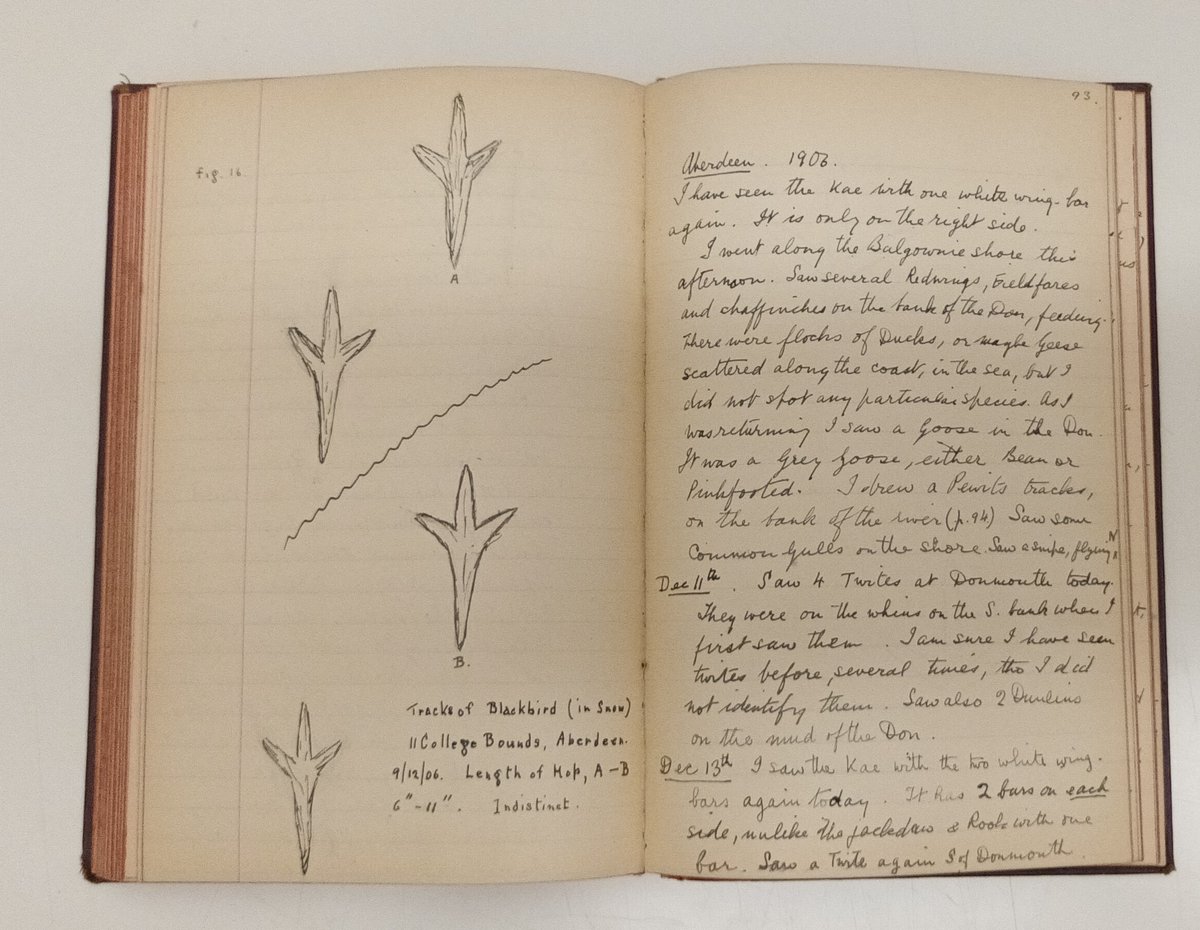 fig. 16.
A
B.
Tracks of Blackbird (in Snow)
11 College Bounds, Aberdeen.
9/12/06. Length of Hop, A–B
6"–11". Indistinct.
93.
Aberdeen. 1906.
I have seen the Kae with one white wing-bar
again. It is only on the right side.
I went along the Balgownie shore this
afternoon. Saw several Redwings, Fieldfares
and chaffinches on the bank of the Don, feeding.
There were flocks of Ducks, or maybe Geese
scattered along the coast, in the sea, but I
did not spot any particular species. As I
was returning I saw a Goose in the Don.
It was a Grey Goose, either Bean or
Pinkfooted. I drew a Pewits tracks,
on the bank of the river (p.94) Saw some
Common Gulls on the shore. Saw a snipe, flying
Dec 11th. Saw 4 Twites at Donmouth today.
They were on the whins on the S. bank when I
first saw them. I am sure I have seen
twites before, several times, tho I did
not identify them. Saw also 2 Dunlins
on the mud of the Don.
Dec 13th I saw the Kae with the two white wing-
bars again today. It has 2 bars on each
side, unlike the jackdaw & Rook with one
bar. Saw a Twite again S of Donmouth.